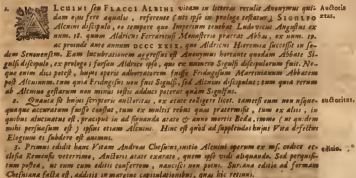 1. ALCUINI seu FLACCI ALBINI vitam in literas reculit Anonymus qui- Auctoris
dam quo fere aequalis, referente ut ipse in prologo testatur, SIGULFO ætas,
Alcuini discipulo, eo tempore quo Imperium tenebat Ludovicus Augustus ex
num. 18. quem Aldricus Ferrariensis Monasterii præerat Abbas, ex num. 19.
ac proinde ante annum DCCC XXIX, quo Aldricus Jeremiæ successit in se-
dem Senonensem. Eam lucubrationem aggressus est Anonymus hortante quodam Abbate Si-
gulfi discipulo, ex prologo; forsan Aldrico ipso, qui ex numero Sigulfi discipulorum fuit. No-
que enim dici potest, hujus opera adhortatorem fuisse Fridugisum Martinianum Abbatem
post Alcuinum, cum quia Fridugisus non fuit Sigulfi, sed Alcuini discipulus; tum quia rerum
ab Alcuino gestarum non minus testis adduci poterat quam Sigulfus.
2. Quanta sit hujus scriptoris auctoritas, ex ætate colligere licet. tametsi cum non usque- auctoritas,
quaque accuratum fuisse constet, cum ex multis rebus quas prætermisit, tum ex aliis, in
quibus allucinatus est, præcipue in ad signanda ætate & anno mortis Beda, immo (ut quidem
mihi persuasum est) ipsius etiam Alcuini. Hinc est quod ad supplendos hujus Vitæ defectus
Elogium ei subdere est animus.
3. Primus edidit hanc Vitam Andreas Chesnius, initio Alcuini operum ex ms. codice ec- editio.
clesiæ Remensis veterrimo, Auctoris ætate exarato, quem ipsi vidi aliquando. Sed perquisi-
tum postea, ut cum cum editis conferrem, nancisci non potui. Suriana editio ad formam
Chesniana facta est, additis in margine capitulationibus, quas hic retinui.